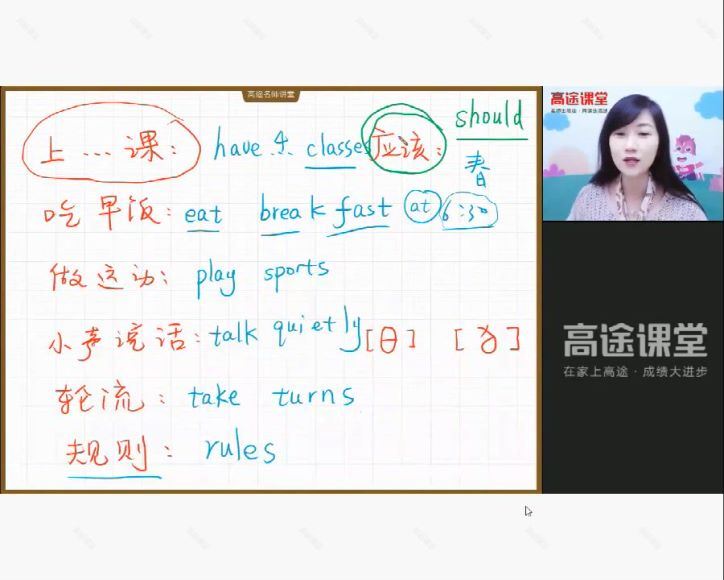 高途名师讲堂
上…课: have 4 classes 应该: should
春
吃早饭: eat breakfast at 6:30
做运动: play sports
小声说话: talk quietly [θ] [ð]
轮流: take turns
规则: rules
高途课堂
高途课堂
在家上高途·成绩大进步